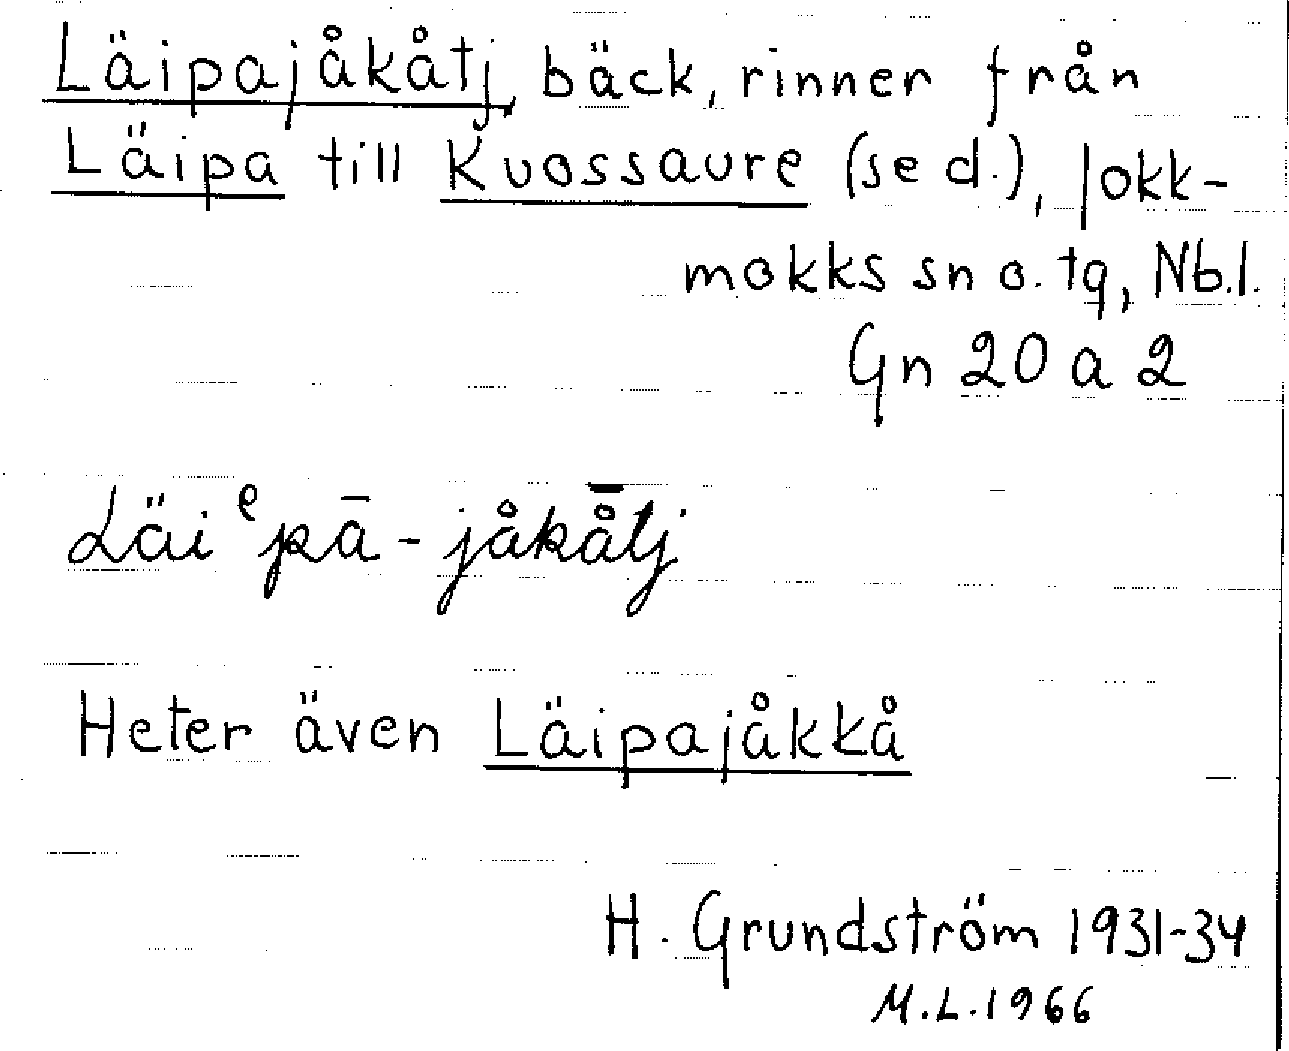 Läipajåkåtj, bäck, rinner från
Läipa till Kuossaure (se d.), Jokk-
mokks sn o. tg, Nb.l.
Gn 20 a 2
Läiᵉpā-jåkå̄tj
Heter även Läipajåkkå
H. Grundström 1931-34
M.L. 1966